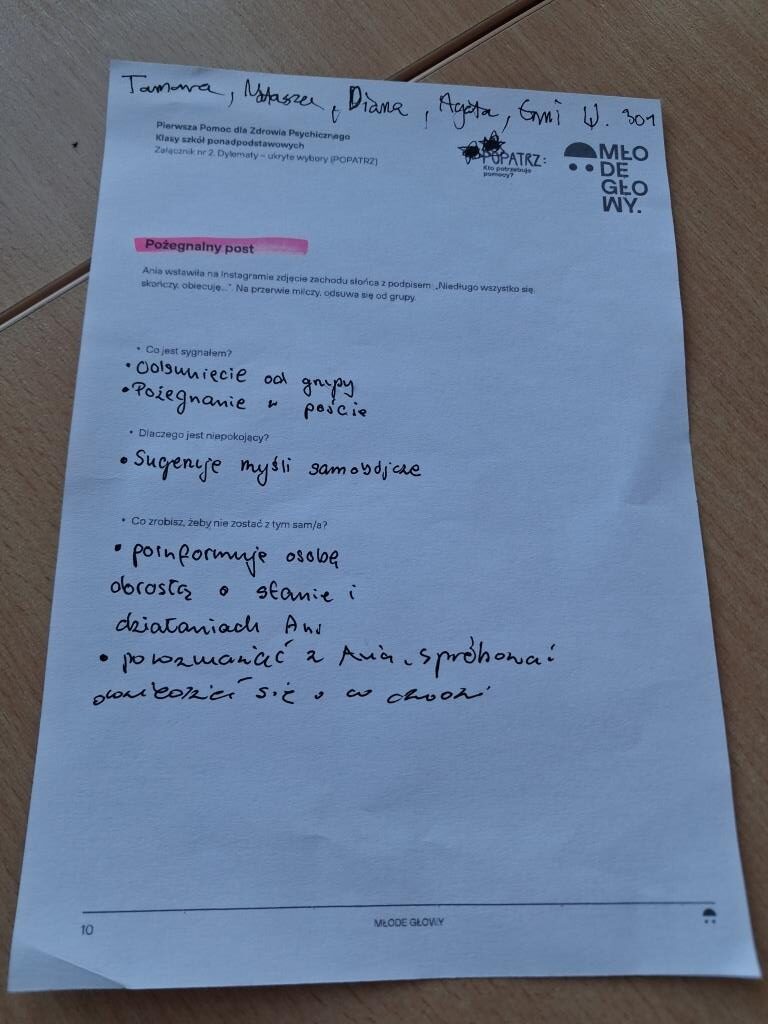 Tamara, Natasza, Diana, Agata, Emi W. 301
Pierwsza Pomoc dla Zdrowia Psychicznego
Klasy szkół ponadpodstawowych
Załącznik nr 2. Dylematy – ukryte wybory (POPATRZ)
POPATRZ:
Kto potrzebuje
pomocy?
MŁO
DE
GŁO
WY.
Pożegnalny post
Ania wstawiła na Instagramie zdjęcie zachodu słońca z podpisem: „Niedługo wszystko się
skończy, obiecuję...". Na przerwie milczy, odsuwa się od grupy.
• Co jest sygnałem?
• Odsunięcie od grupy
• Pożegnanie w poście
• Dlaczego jest niepokojący?
• Sugeruje myśli samobójcze
• Co zrobisz, żeby nie zostać z tym sam/a?
• poinformuje osobę
dorosłą o stanie i
działaniach Ani
• porozmawiać z Anią, spróbować
dowiedzieć się o co chodzi
10
MŁODE GŁOWY